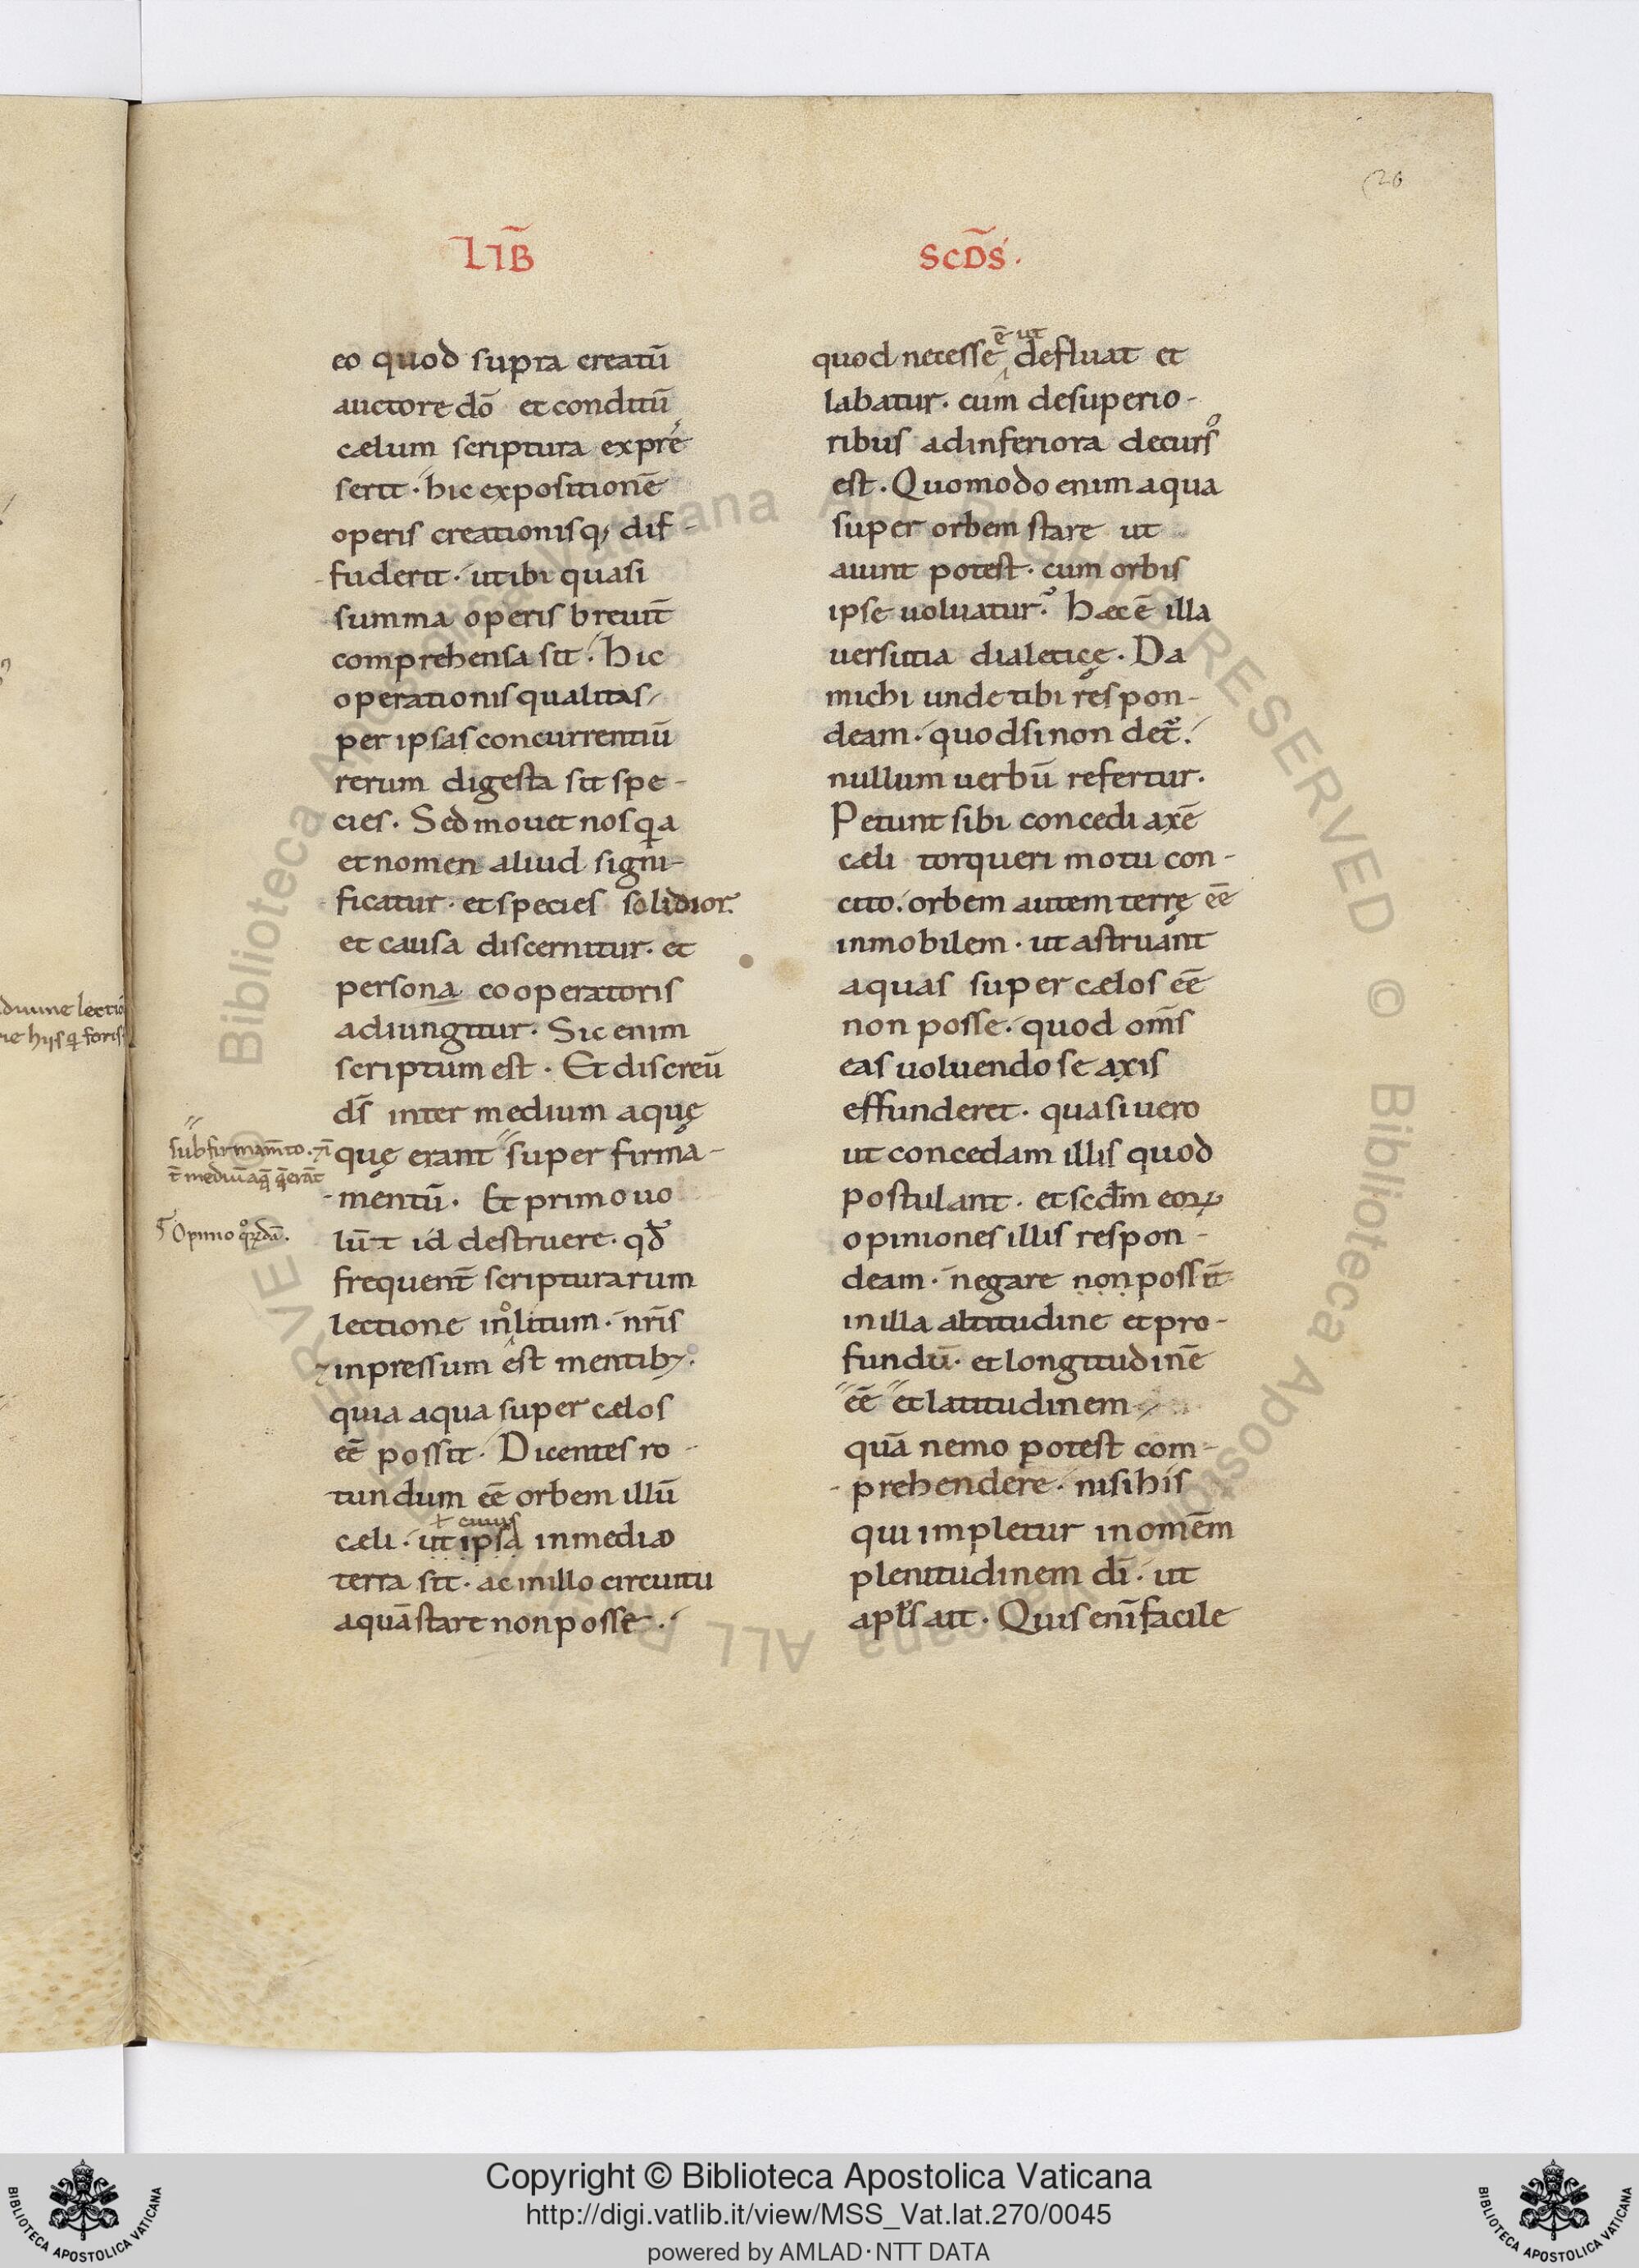 20
LIB̃
SCD̃S.
eo quod supra creatū
auctore dō et conditū
cælum scriptura expre
serit · hic expositionē
operis creationisq; dif-
fuderit · ut ibi quasi
summa operis breuit̄
comprehensa sit · hic
operationis qualitas
per ipsas concurrentiū
rerum digesta sit spe-
cies. Sed mouet nos qa
et nomen aliud signi-
ficatur · et species solidior.
et causa discernitur. et
persona cooperatoris
adiungitur. Sic enim
scriptum est. Et discreū
dſ̄ inter medium aquę
quę erant super firma-
mentū. Et primo uo
lūt id destruere. qđ
frequent̄ scripturarum
lectione inolitum · nr̄is
inpressum est mentib;.
quia aqua super cælos
eē possit. Dicentes ro-
tundum eē orbem illū
cuius
cæli · ut ipsa in media
terra sit · ac in illo circuitu
aquā stare non posse.
sub firmam̄to.
Opinio qr̄dā.
ē ut
quod necesse defluat et
labatur. cum de superio-
ribus ad inferiora decurs᾽
est. Quomodo enim aqua
super orbem stare ut
aiunt potest. cum orbis
ipse uoluatur? Hæc ē illa
uersutia dialeticę. Da
michi unde tibi respon-
deam. quod si non det᷑.
nullum uerbū refertur.
Petunt sibi concedi axē
cæli torqueri motu con-
cito. orbem autem terrę eē
inmobilem · ut astruant
aquas super cælos eē
non posse. quod om̄s
eas uoluendo se axis
effunderet. quasi uero
ut concedam illis quod
postulant. et scđm eoꝝ
opiniones illis respon-
deam. negare non possit̄
in illa altitudine et pro-
fundū. et longitudinē
eē et latitudinem
quā nemo potest com-
prehendere. nisi his
qui impletur in omēm
plenitudinem dī. ut
apl̄s ait. Quis enī facile
diuine lectio
Copyright © Biblioteca Apostolica Vaticana
http://digi.vatlib.it/view/MSS_Vat.lat.270/0045
powered by AMLAD·NTT DATA
BIBLIOTECA APOSTOLICA VATICANA
BIBLIOTECA APOSTOLICA VATICANA
© Biblioteca Apostolica Vaticana ALL RIGHTS RESERVED © Biblioteca Apostolica Vaticana ALL RIGHTS RESERVED